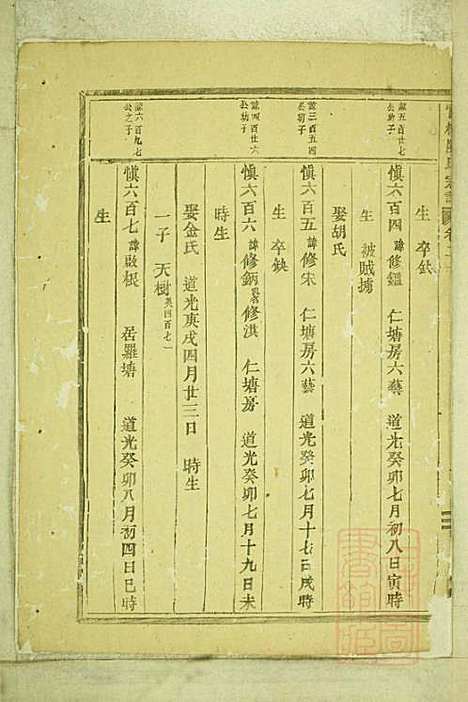 生 卒缺
諒五百廿七公幼子
慎六百四 諱修鑑 仁塘房六藝 道光癸卯七月初八日寅時
生 被賊擄
娶胡氏
諒三百五四公初子
慎六百五 諱修宋 仁塘房六藝 道光癸卯七月十七日戌時
生 卒缺
諒四百廿六公幼子
慎六百六 諱修鈵 修淇 仁塘房 道光癸卯七月十九日未
時生
娶金氏 道光庚戌四月廿三日 時生
一子 天樹 英四百七一
諒六百九七公之子
慎六百七 諱啟根 居羅塘 道光癸卯八月初四日巳時
生